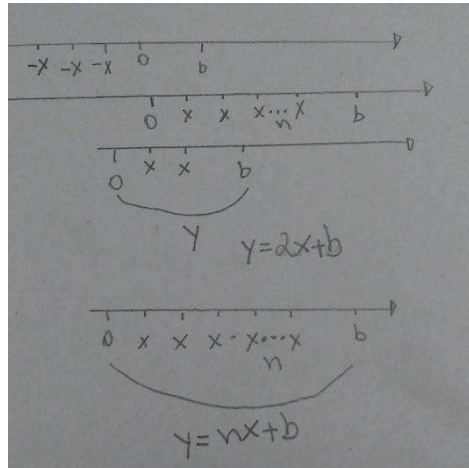 -x -x -x 0 b
0 x x x ... x b
n
0 x x b
y y=2x+b
0 x x x . x ... x b
n
y=nx+b